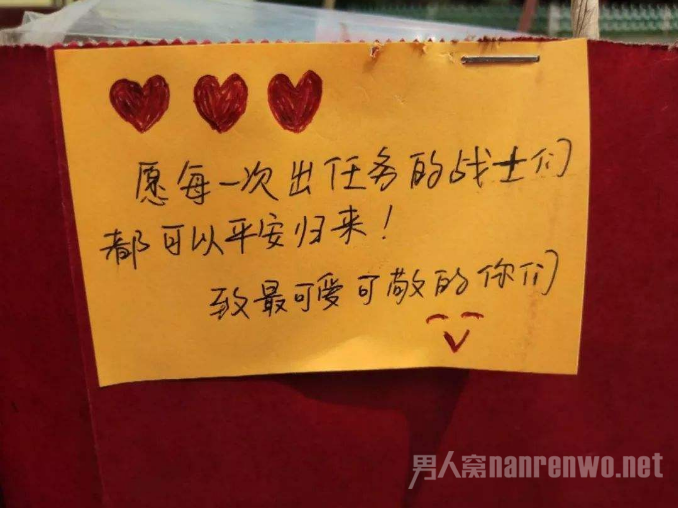 愿每一次出任务的战士们
都可以平安归来!
致最可爱可敬的你们
男人窝nanrenwo.net